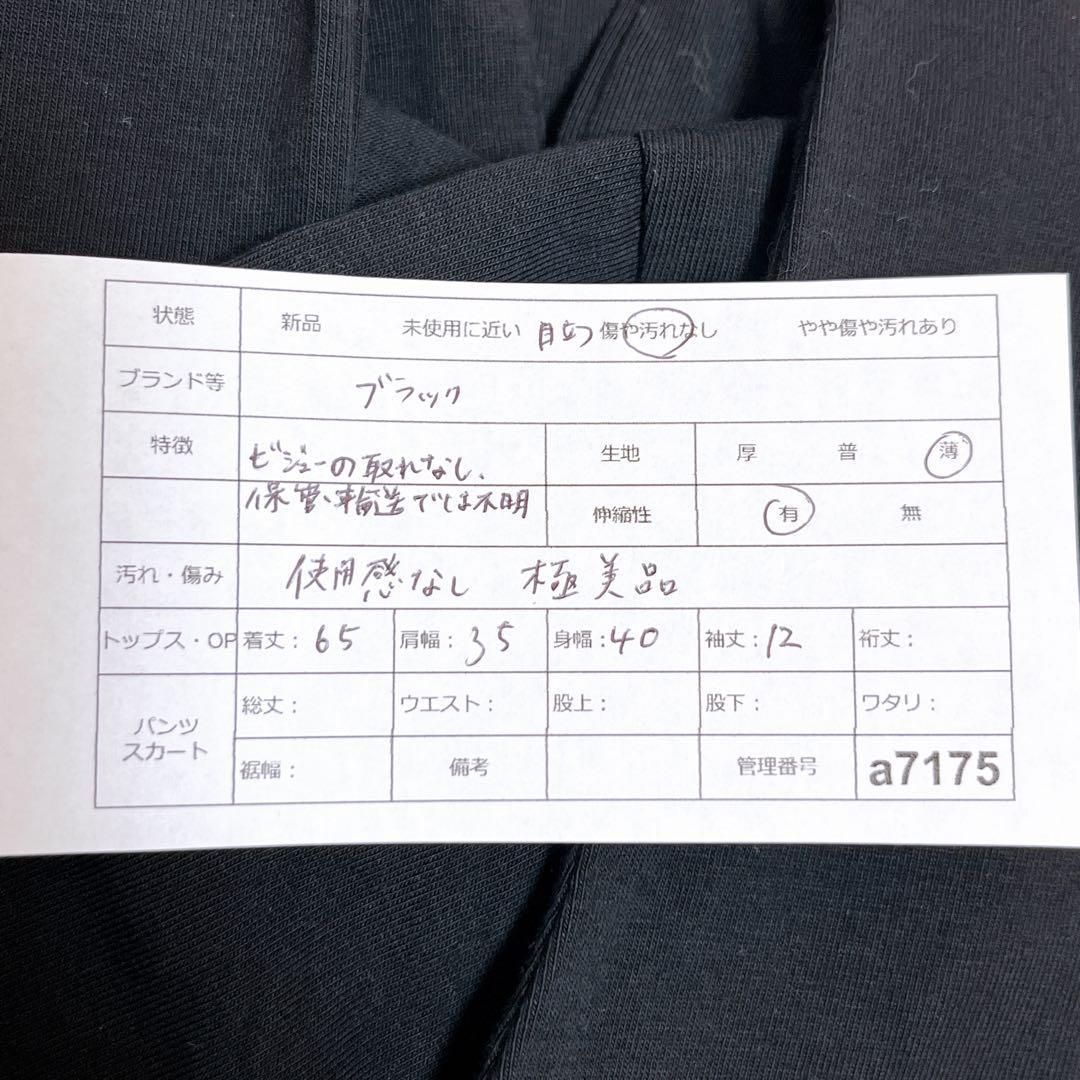 状態 新品 未使用に近い 目立つ 傷や汚れなし やや傷や汚れあり
ブランド等 ブラック
特徴 ビジューの取れなし、 生地 厚 普 薄
保管、輸送では不明 伸縮性 有 無
汚れ・傷み 使用感なし 極美品
トップス・OP 着丈：65 肩幅：35 身幅：40 袖丈：12 裄丈：
パンツ 総丈： ウエスト： 股上： 股下： ワタリ：
スカート 裾幅： 備考 管理番号 a7175